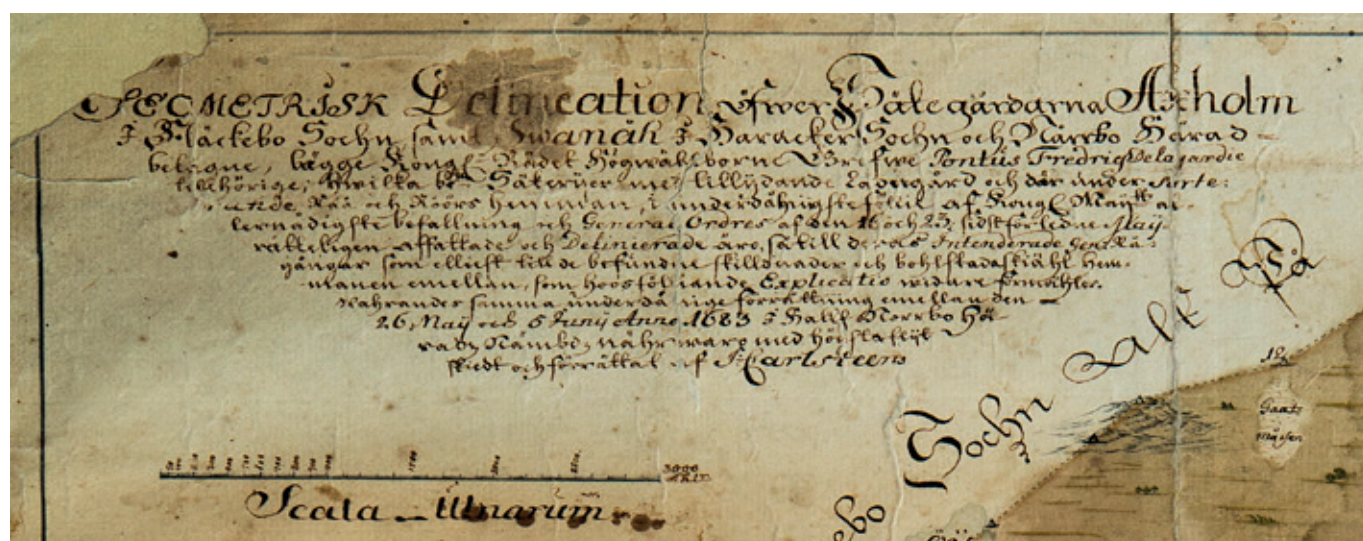 GEOMETRISK Delineation öfwer Säte gårdarna Axholm
I Fläckebo Sochn, samt Swanåh I Haracker Sochn och Närrbo Härad
belägne, bägge Kongl. Rådet Högwählborne Grefwe Pontus Fredriq De la gardie
tillhörige; Hwilka be:te Säterijer med tillÿdande Ladugård och där under Sorte:
rande, Rå: och Röörs hemman, i underdåhnigste föllie af Kongl. Maij:tz al-
lernådigste befallning och General Ordres af den 16 och 23, sidstförledne Maij.
rätteligen affattade och Delinierade äro, så till deras Intenderade gent Rå-
gångar som elliest till de befundne skilldnader och bohlstadaskiähl hem-
manen emellan, som hoosföliande Explicatio widare förmähler.
wahrandes samma underdånige förrättning emellan den
26, Maÿ och 5 Junÿ Anno 1683 I Hallf Norrbo Hä-
radz Nämbdz nährwaro med höjsta flÿt
skedt och förrättat af J: Carlsteen
1000
1500
2000
2500
3000
Alir
Scala Ulnarum
Sochn
Alf
På
Gaatz
måssen
ebo